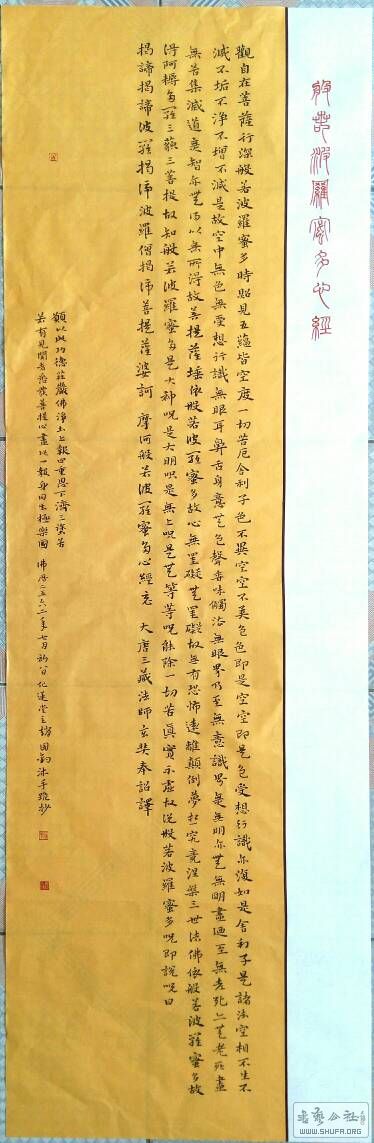 般若波羅蜜多心經
觀自在菩薩行深般若波羅蜜多時照見五蘊皆空度一切苦厄舍利子色不異空空不異色色即是空空即是色受想行識亦復如是舍利子是諸法空相不生不
滅不垢不淨不增不減是故空中無色無受想行識無眼耳鼻舌身意无色聲香味觸法無眼界乃至無意識界無無明亦无無明盡乃至無老死亦无老死盡
無苦集滅道無智亦无得以無所得故菩提薩埵依般若波羅蜜多故心無罣礙无罣礙故無有恐怖遠離顛倒夢想究竟涅槃三世諸佛依般若波羅蜜多故
得阿耨多羅三藐三菩提故知般若波羅蜜多是大神咒是大明咒是無上咒是无等等咒能除一切苦真實不虛故說般若波羅蜜多咒即說咒曰
揭諦揭諦波羅揭諦波羅僧揭諦菩提薩婆訶 摩訶般若波羅蜜多心經 大唐三藏法師玄奘奉詔譯
願以此功德莊嚴佛淨土上報四重恩下濟三塗苦
若有見聞者悉發菩提心盡此一報身同生極樂國 佛曆二五六二年七月初八日 蓮堂主 沐手敬抄
书法公社
WWW.SHUFA.ORG